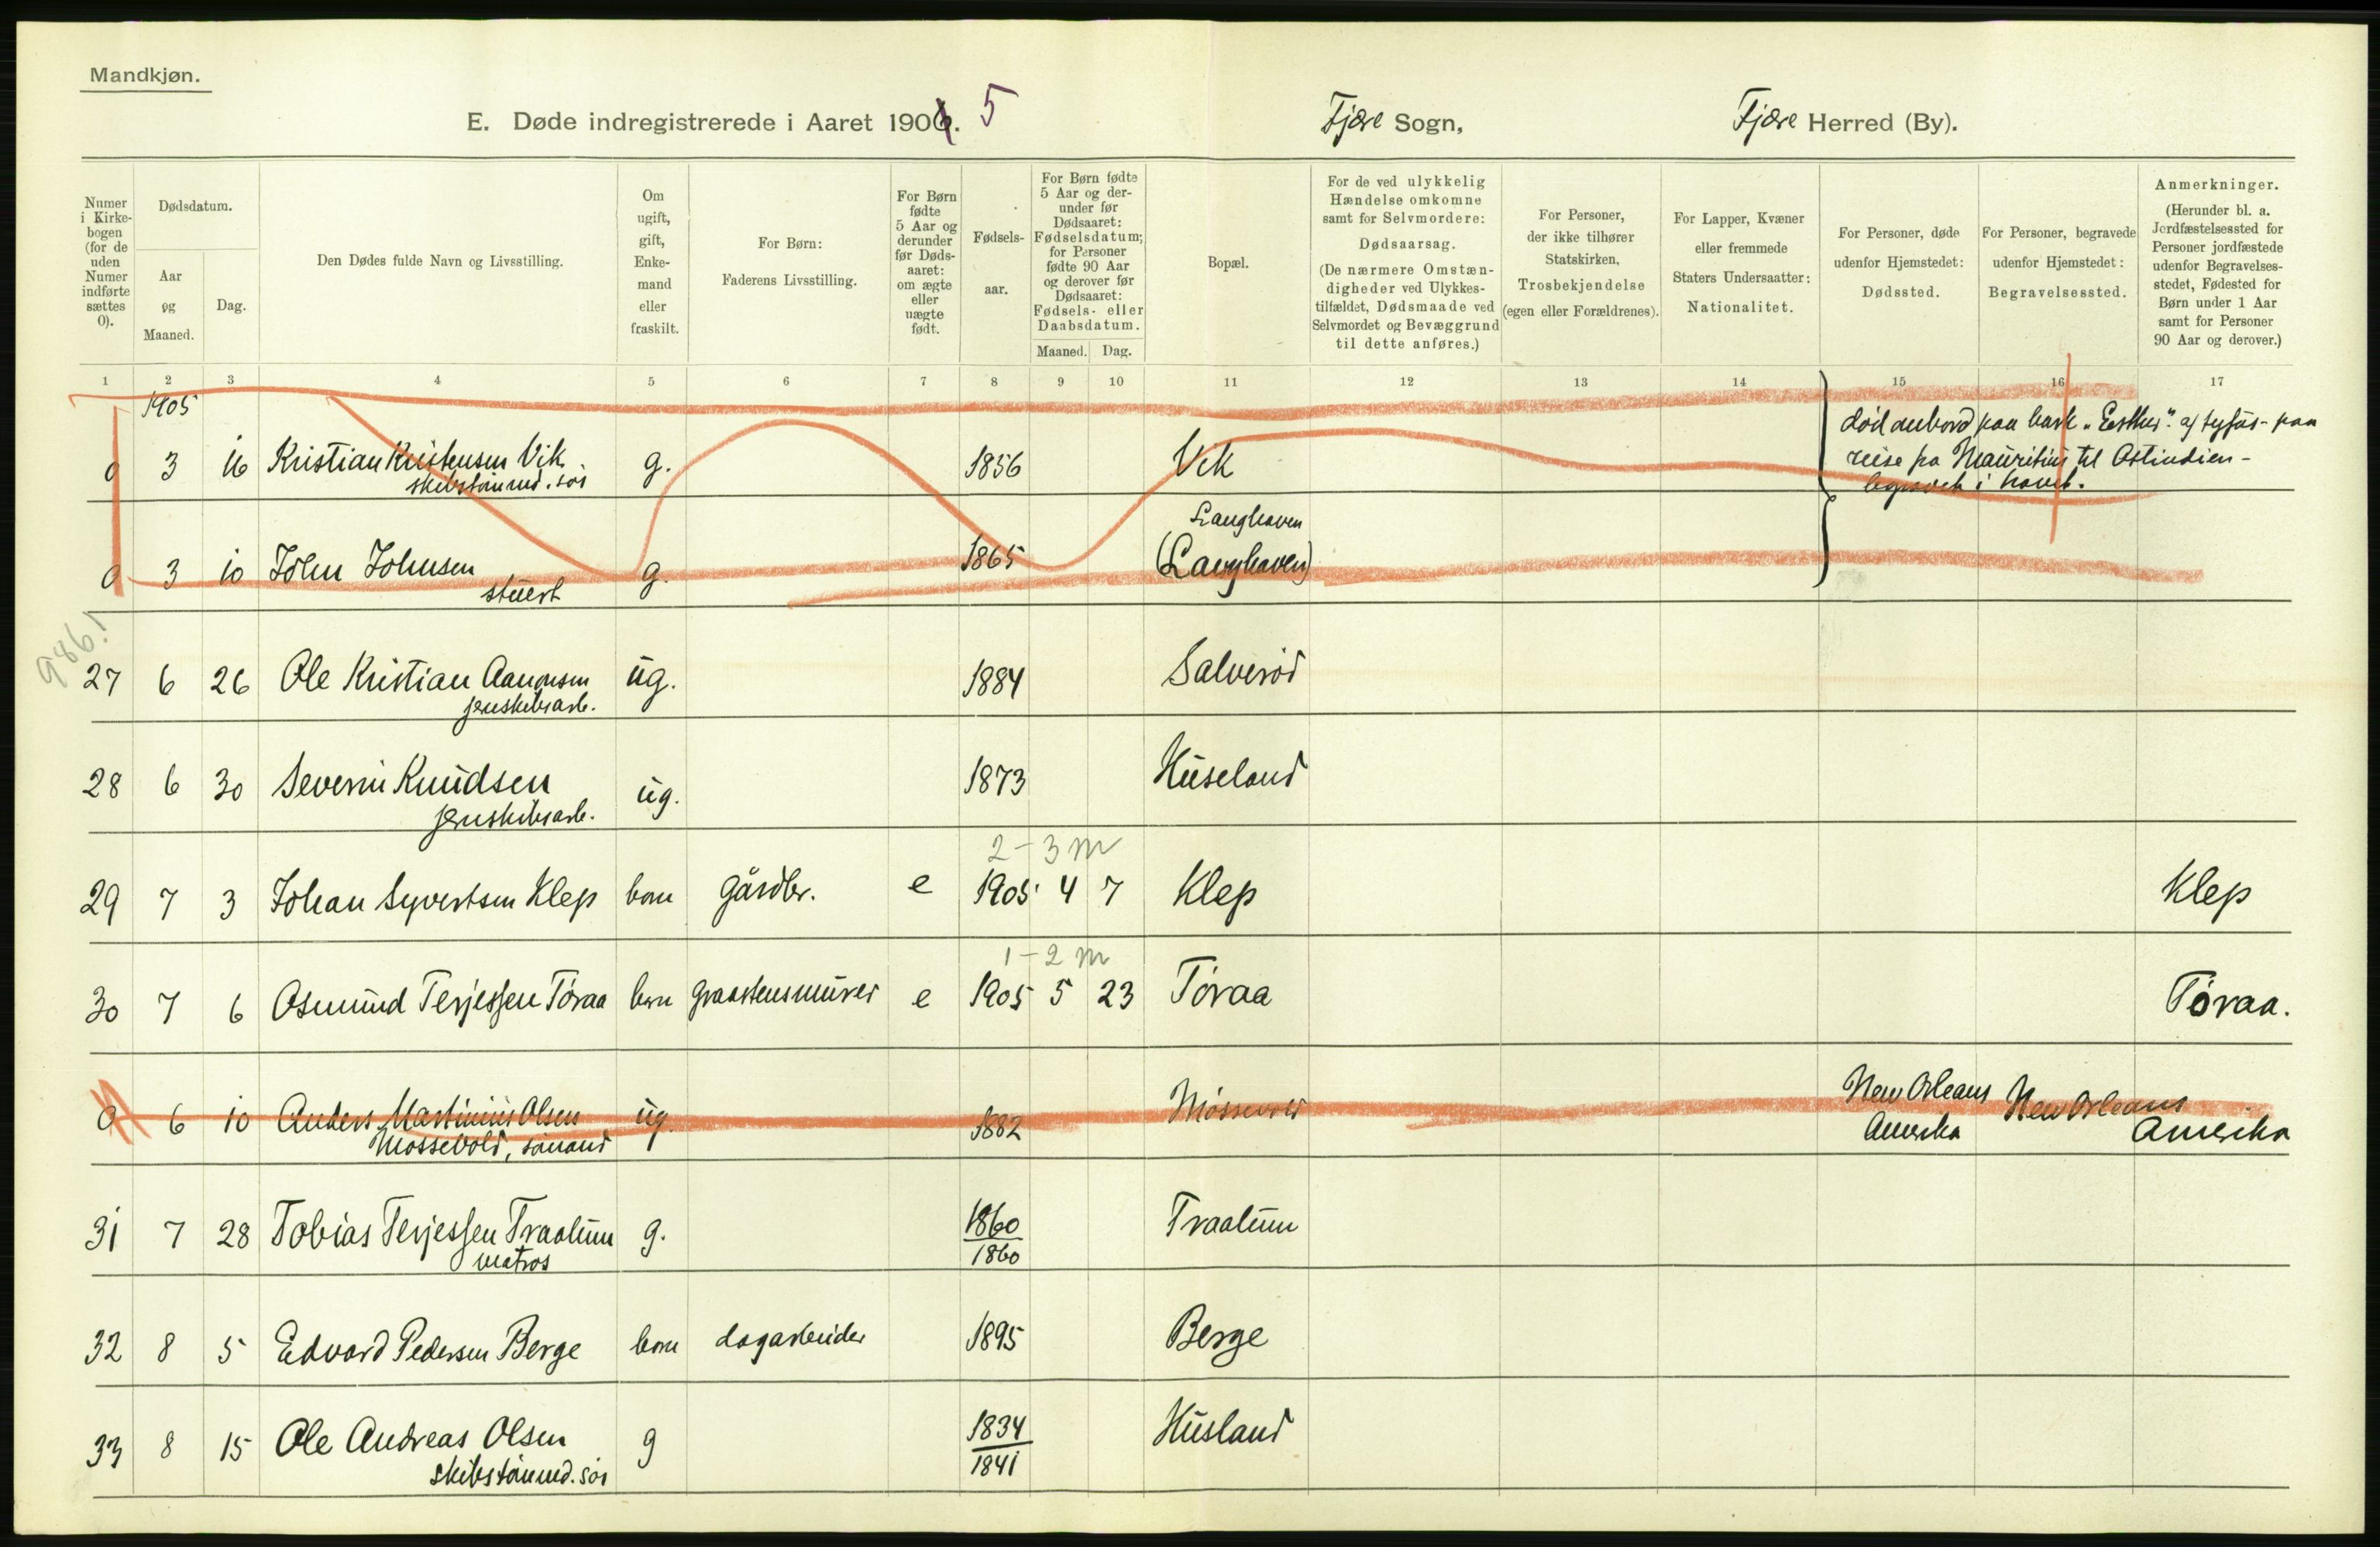 Mandkjøn.
E. Døde indregistrerede i Aaret 1906. 5 Fjære Sogn, Fjære Herred (By).
Numer i Kirkebogen (for de uden Numer indførte sættes 0).
Dødsdatum.
Aar og Maaned.
Dag.
Den Dødes fulde Navn og Livsstilling.
Om ugift, gift, Enkemand eller fraskilt.
For Børn:
Faderens Livsstilling.
For Børn fødte 5 Aar og derunder før Dødsaaret: om ægte eller uægte født.
Fødselsaar.
For Børn fødte 5 Aar og derunder før Dødsaaret: Fødselsdatum; for Personer fødte 90 Aar og derover før Dødsaaret: Fødsels- eller Daabsdatum.
Maaned. Dag.
Bopæl.
For de ved ulykkelig Hændelse omkomne samt for Selvmordere:
Dødsaarsag.
(De nærmere Omstændigheder ved Ulykkestilfældet, Dødsmaade ved Selvmordet og Bevæggrund til dette anføres.)
For Personer, der ikke tilhører Statskirken,
Trosbekjendelse
(egen eller Forældrenes).
For Lapper, Kvæner eller fremmede Staters Undersaatter:
Nationalitet.
For Personer, døde udenfor Hjemstedet:
Dødssted.
For Personer, begravede udenfor Hjemstedet:
Begravelsessted.
Anmerkninger.
(Herunder bl. a. Jordfæstelsessted for Personer jordfæstede udenfor Begravelsesstedet, Fødested for Børn under 1 Aar samt for Personer 90 Aar og derover.)
1 2 3 4 5 6 7 8 9 10 11 12 13 14 15 16 17
1905
0 3 16 Kristian Kristensen Vik g. 1856 Vik
skibstømmd. søs
død ombord paa bark "Esther" af tyfus - paa
reise fra Mauritius til Ostindien -
begravet i havet.
Langhaven
0 3 10 John Johnsen g. 1865 (Langhaven)
stuert
986!
27 6 26 Ole Kristian Aanonsen ug. 1884 Salverød
jernskibsarb.
28 6 30 Severin Knudsen ug. 1873 Huseland
jernskibsarb.
2 - 3 m
29 7 3 Johan Syvertsen Klep barn gårdbr. e 1905 4 7 Klep Klep
1 - 2 m
30 7 6 Osmund Terjessen Töraa barn graastensmurer e 1905 5 23 Töraa Töraa.
0 6 10 Anders Martinius Olsen ug. 1882 Møssevold New Orleans New Orleans
Mossevold, sømand Amerika Amerika
31 7 28 Tobias Terjessen Traalum g. 1860 Traalum
matros 1860
32 8 5 Edvard Pedersen Berge barn dagarbeider 1895 Berge
33 8 15 Ole Andreas Olsen g 1834 Husland
skibstømmd. søs 1841